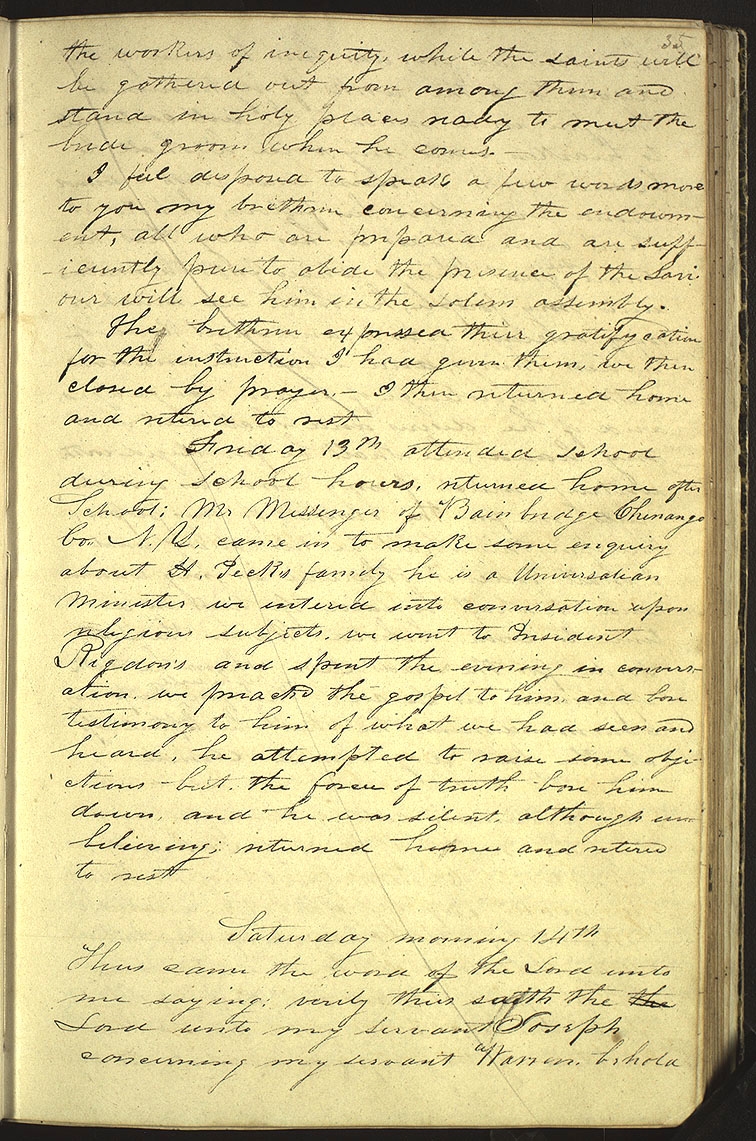 35
the workers of iniquity, while the saints will
be gathered out from among them and
stand in holy places ready to meet the
bride groom when he comes.—
I feel disposed to speak a few words more
to you my brethren concerning the endowm-
ent, all who are prepared and are suff-
-iciently pure to abide the presence of the Savi-
our will see him in the solem assembly.
The brethren expressed their gratifycation
for the instruction I had given them, we then
closed by prayer.— I then returned home
and retired to rest
Friday 13th attended school
during school hours, returned home after
School; Mr Messenger of Bainbridge Chenango
Co. N.Y. came in to make some enquiry
about H. Peck's family he is a Universalian
Minister we entered into conversation upon
religious subjects, we went to President
Rigdon's and spent the evening in convers-
ation, we preach'd the gospel to him, and bore
testimony to him of what we had seen and
heard, he attempted to raise some obje-
ctions but the force of truth bore him
down, and he was silent, although un-
believing; returned home and retired
to rest
Saturday morning 14th
Thus came the word of the Lord unto
me saying; verily thus saith the the
Lord unto my servant Joseph
concerning my servant Warren, behold